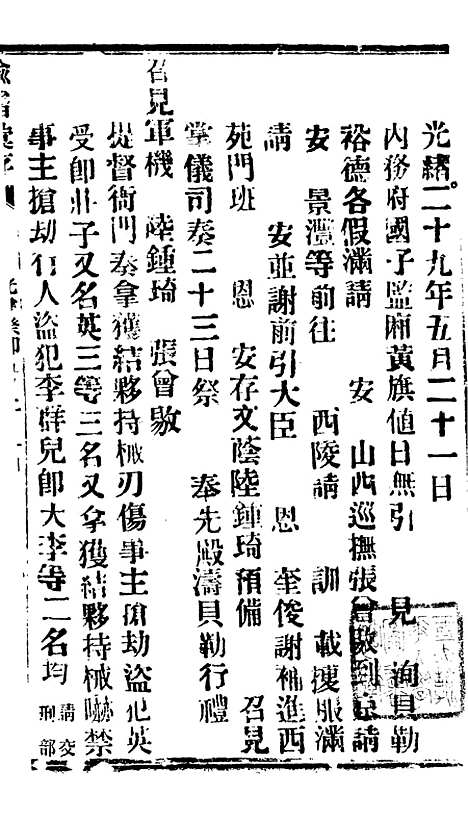 光緒二十九年五月二十一日
內務府國子監廂黃旗値日無引 見 洵貝勒
裕德各假滿請 安 山西巡撫張曾敭到京請
安 景灃等前往 西陵請 訓 載 服滿
請 安並謝前引大臣 恩 奎俊謝補進西
苑門班 恩 安存文蔭陸鍾琦預備 召見
掌儀司奏二十三日祭 奉先殿濤貝勒行禮
召見軍機 陸鍾琦 張曾敭
提督衙門奏拿獲結夥持械刃傷事主搶劫盜犯英
受卽壯子又名英三等三名又拿獲結夥持械嚇禁
事主搶劫行人盜犯李群兒卽大李等二名均 請交刑部
諭旨彙存